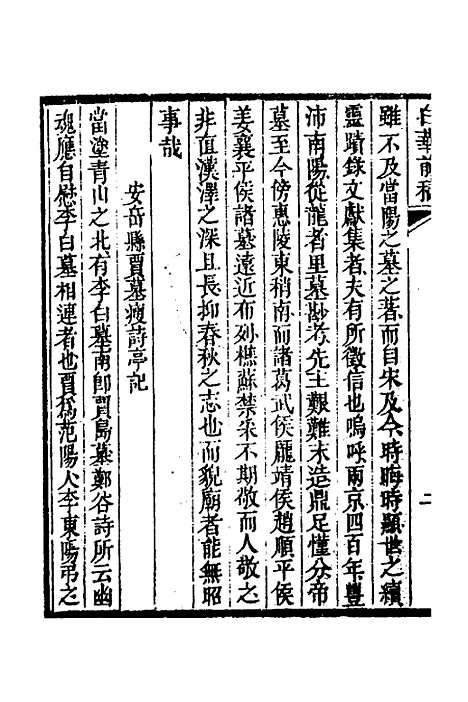 白華前稿
二
雖不及當陽之墓之著而自宋及今時晦時顯世之續
靈蹟錄文獻集者夫有所徵信也嗚呼兩京四百年豐
沛南陽從龍者里墓尠考先主艱難末造鼎足僅分帝
墓至今傍惠陵東稍南而諸葛武侯龐靖侯趙順平侯
姜襄平侯諸墓遠近布列樵蘇禁采不期敬而人敬之
非直漢澤之深且長抑春秋之志也而貌廟者能無昭
事哉
安岳縣賈墓瘦詩亭記
當塗青山之北有李白墓南卽賈島墓鄭谷詩所云幽
魂應自慰李白墓相連者也賈爲范陽人李東陽弔之